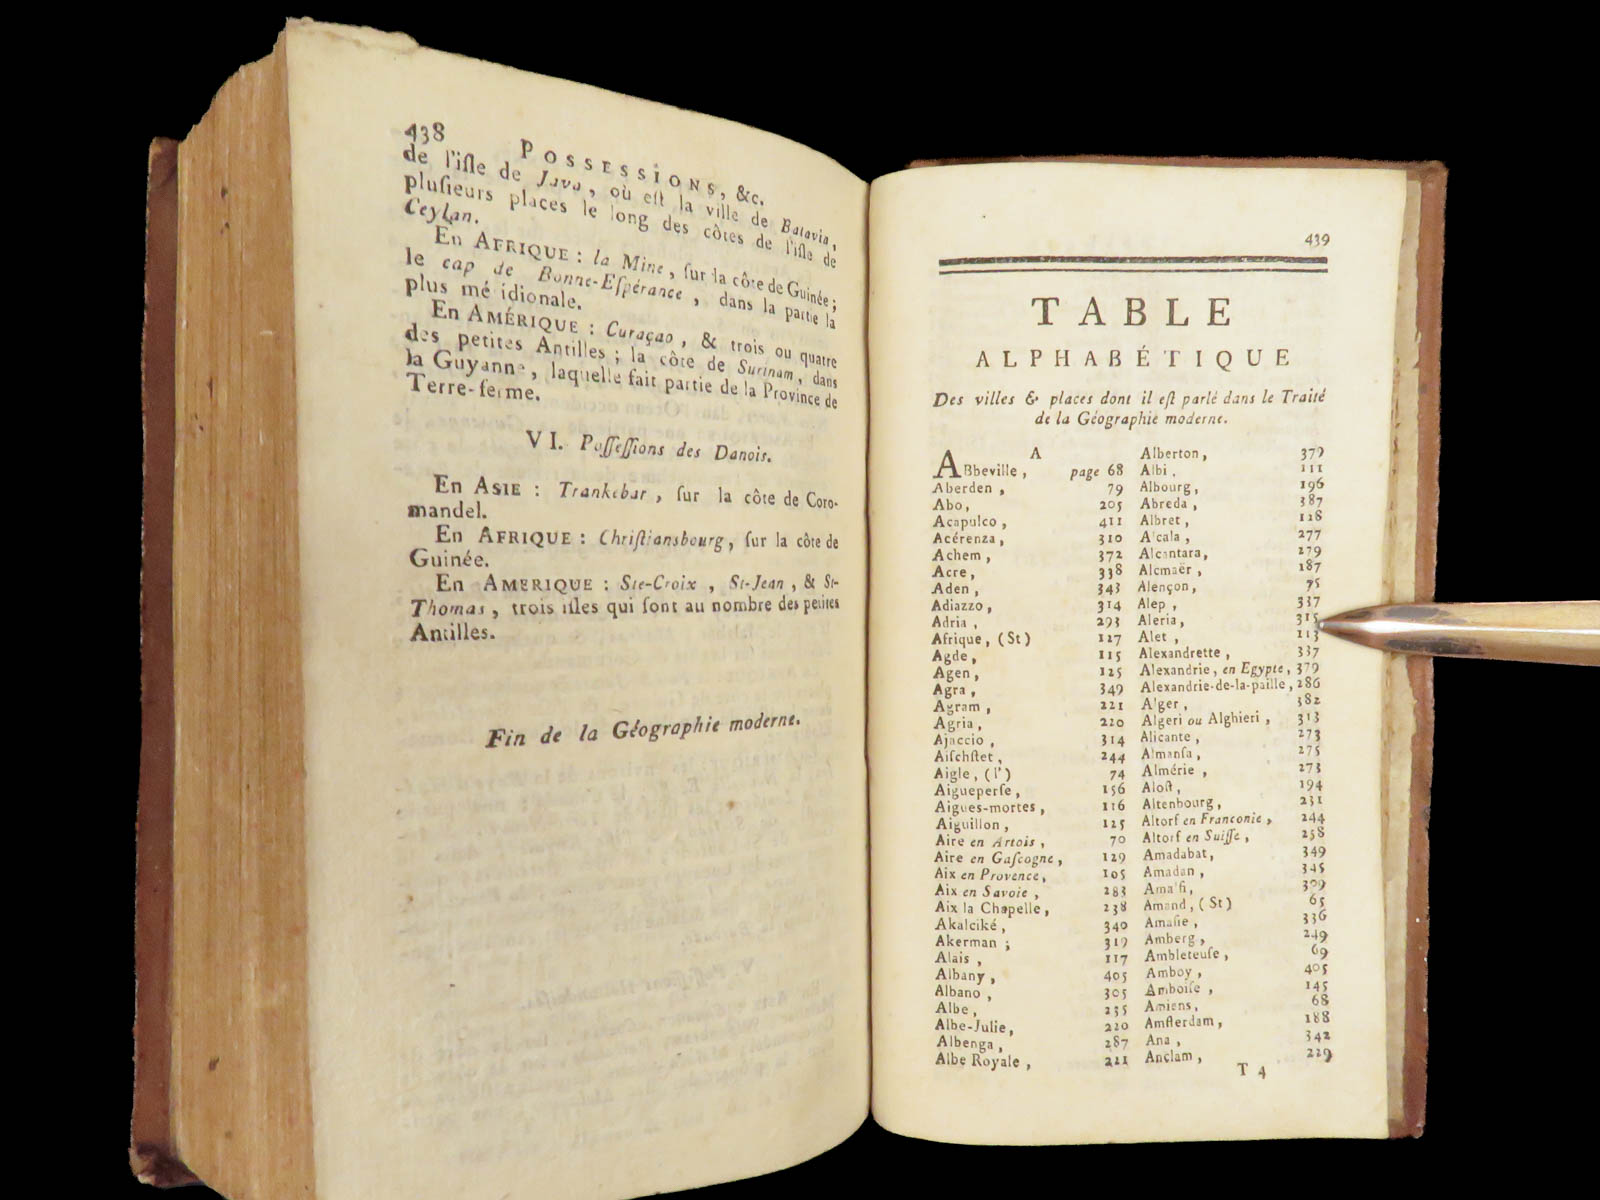 438 POSSESSIONS, &c.
de l'iſle de Java, où eſt la ville de Batavia,
pluſieurs places le long des côtes de l'iſle de
Ceylan.
En AFRIQUE : la Mine, ſur la côte de Guinée ;
le cap de Bonne-Eſpérance, dans la partie la
plus mé idionale.
En AMÉRIQUE : Curaçao, & trois ou quatre
des petites Antilles ; la côte de Surinam, dans
la Guyanne, laquelle fait partie de la Province de
Terre-ferme.
VI. Poſſeſſions des Danois.
En ASIE : Trankebar, ſur la côte de Coro-
mandel.
En AFRIQUE : Chriſtiansbourg, ſur la côte de
Guinée.
En AMERIQUE : Ste-Croix, St-Jean, & St-
Thomas, trois iſles qui ſont au nombre des petites
Antilles.
Fin de la Géographie moderne.
439
TABLE
ALPHABÉTIQUE
Des villes & places dont il eſt parlé dans le Traité
de la Géographie moderne.
A
ABbeville, page 68
Aberden, 79
Abo, 205
Acapulco, 411
Acérenza, 310
Achem, 372
Acre, 338
Aden, 343
Adiazzo, 314
Adria, 293
Afrique, (St) 127
Agde, 115
Agen, 125
Agra, 349
Agram, 221
Agria, 220
Ajaccio, 314
Aiſchſtet, 244
Aigle, (l') 74
Aigueperſe, 156
Aigues-mortes, 116
Aiguillon, 125
Aire en Artois, 70
Aire en Gaſcogne, 129
Aix en Provence, 105
Aix en Savoie, 283
Aix la Chapelle, 238
Akalciké, 340
Akerman ; 319
Alais, 117
Albany, 405
Albano, 305
Albe, 235
Albe-Julie, 220
Albenga, 287
Albe Royale, 221
Alberton, 379
Albi, 111
Albourg, 196
Abreda, 387
Albret, 128
A'cala, 277
Alcantara, 279
Alcmaër, 187
Alençon, 75
Alep, 337
Aleria, 315
Alet, 113
Alexandrette, 337
Alexandrie, en Egypte, 379
Alexandrie-de-la-paille, 286
A'ger, 382
Algeri ou Alghieri, 313
Alicante, 273
A'manſa, 275
Almérie, 273
Aloſt, 194
Altenbourg, 231
Altorf en Franconie, 244
Altorf en Suiſſe, 258
Amadabat, 349
Amadan, 345
Ama'fi, 309
Amand, (St) 65
Amaſie, 336
Amberg, 249
Ambleteuſe, 69
Amboy, 405
Amboiſe, 145
Amiens, 68
Amſterdam, 188
Ana, 342
Anclam, 229
T 4